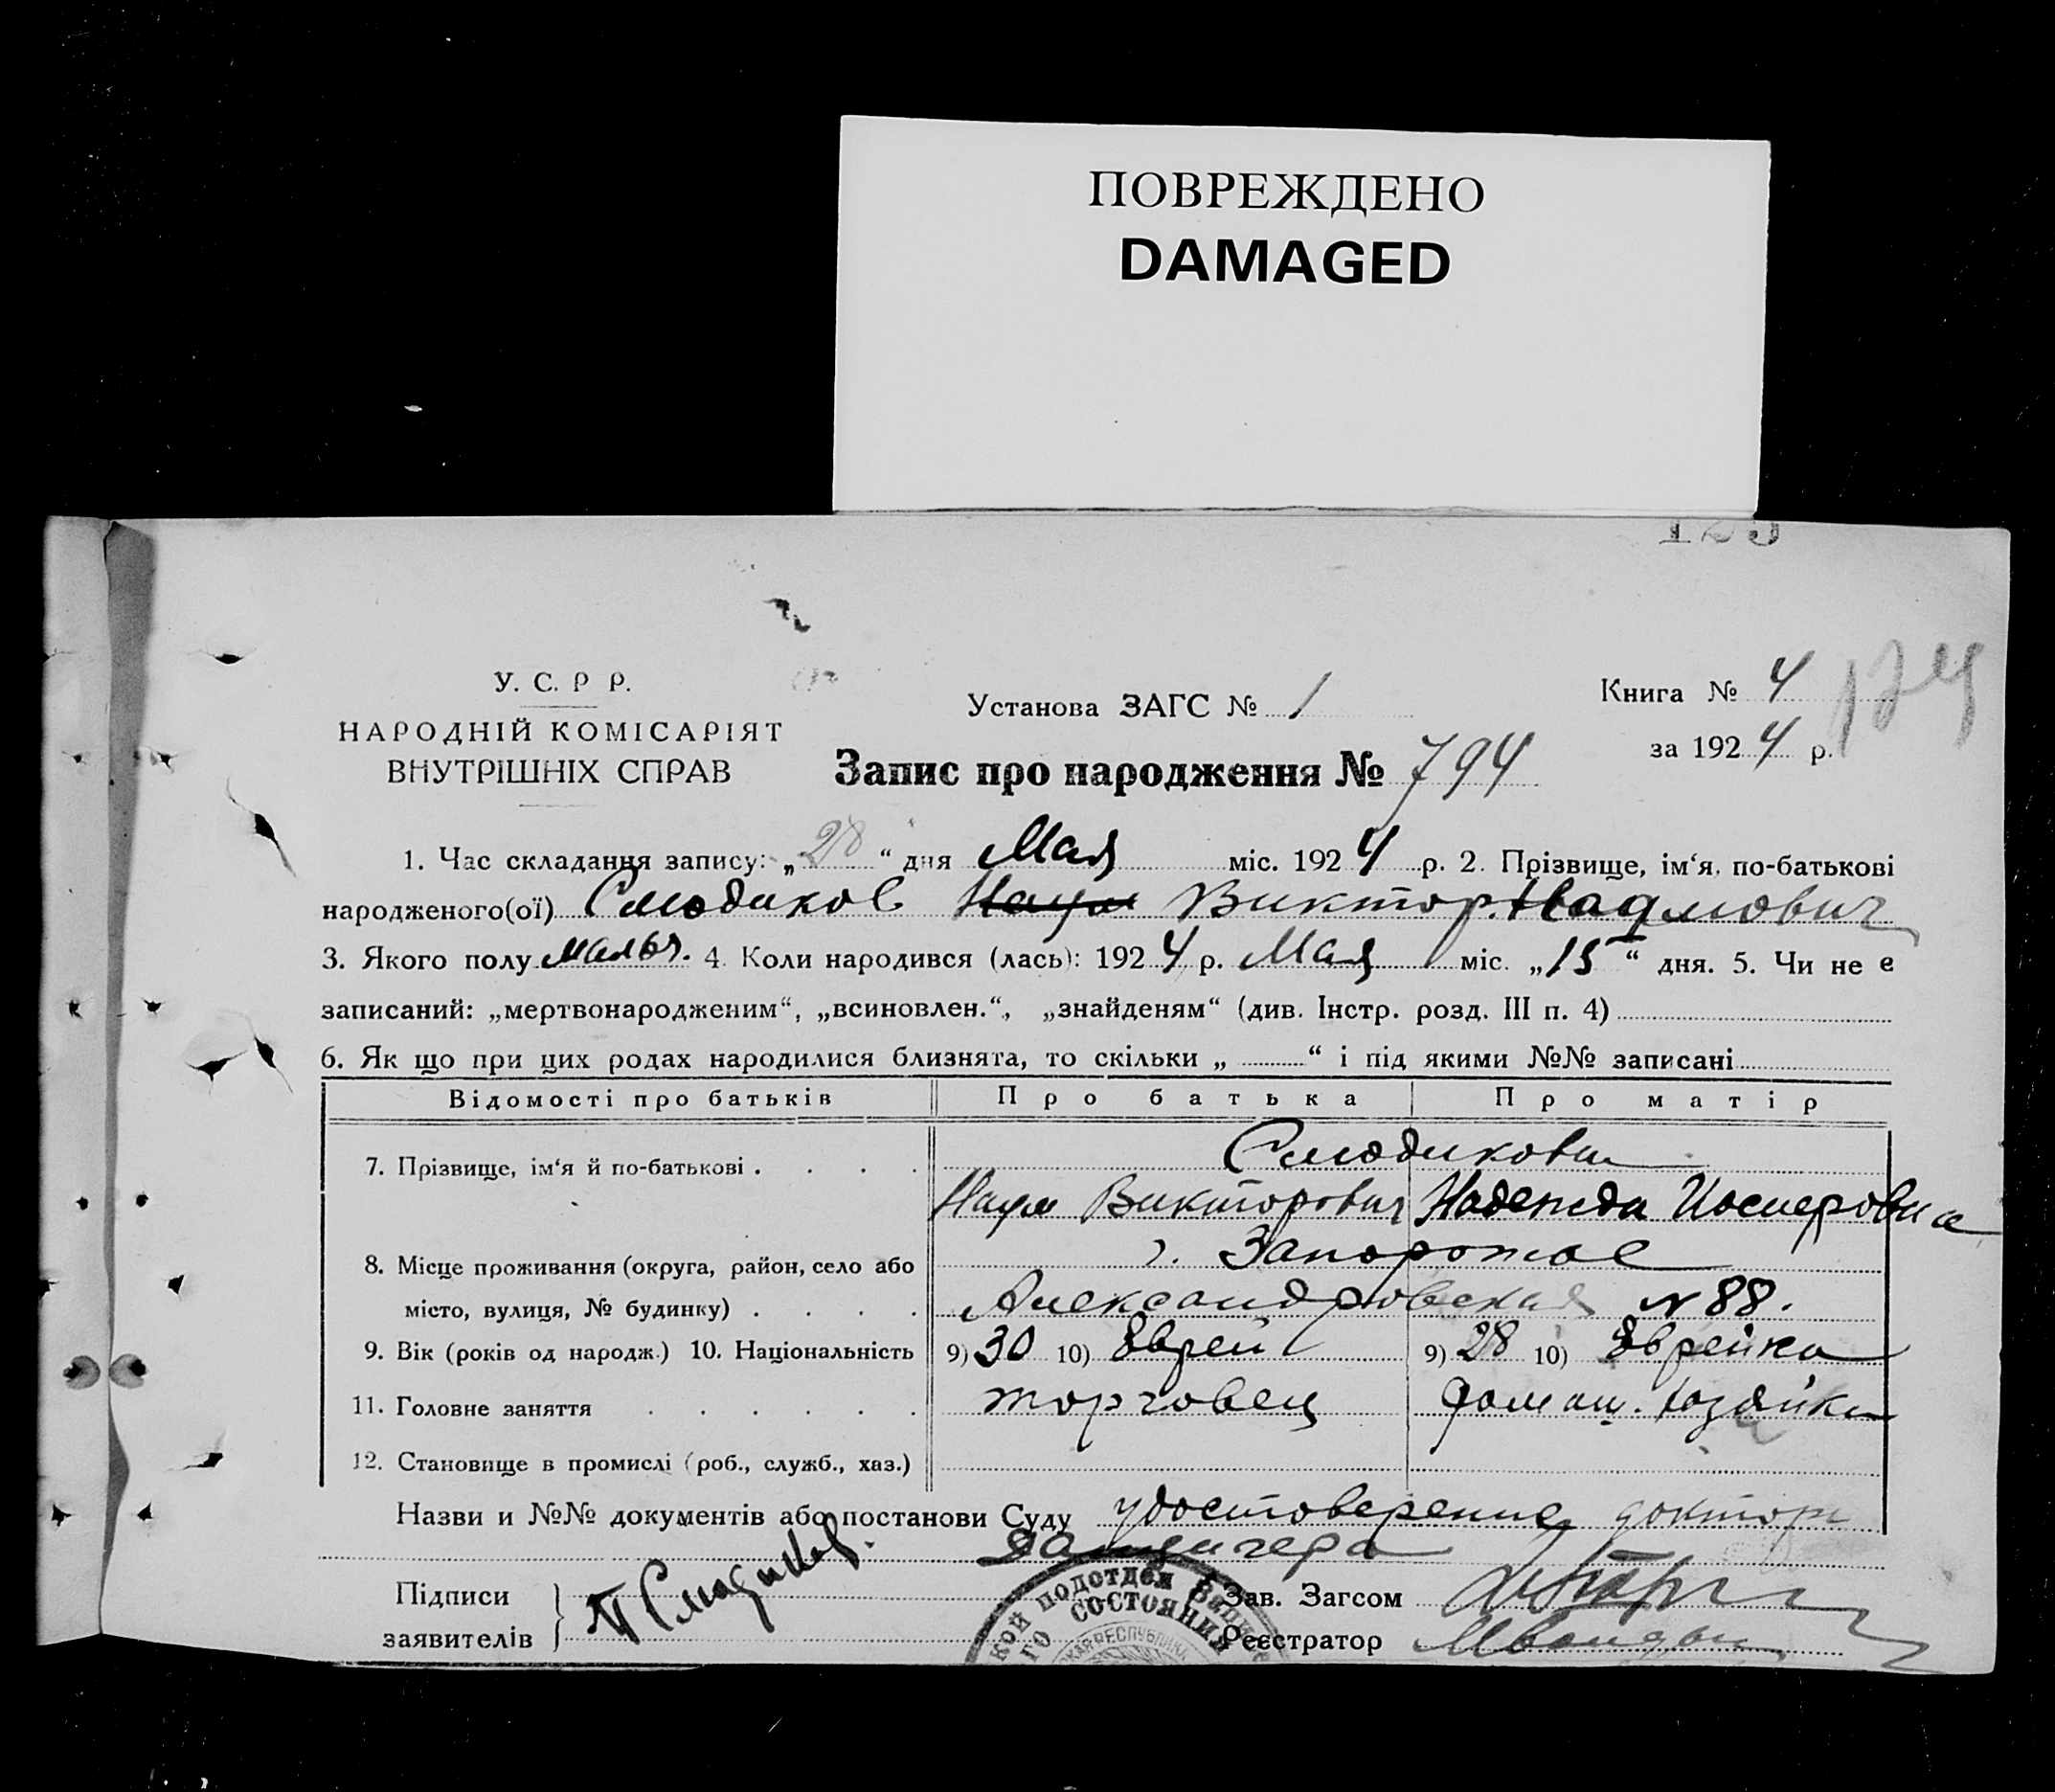 ПОВРЕЖДЕНО
DAMAGED
123
У. С. Р Р.
НАРОДНІЙ КОМІСАРІЯТ
ВНУТРІШНІХ СПРАВ
Установа ЗАГС № 1
Книга № 4
за 1924 р.
Запис про народження № 794
1. Час складання запису: „28“ дня Мая міс. 1924 р. 2. Прізвище, ім‘я, по-батькові
народженого(ої) Слюдиков Наум Виктор Наумович
3. Якого полу мальч. 4. Коли народився (лась): 1924 р. Мая міс. „15“ дня. 5. Чи не є
записаний: „мертвонародженим“, „всиновлен.“, „знайденям“ (див. Інстр. розд. III п. 4)
6. Як що при цих родах народилися близнята, то скільки „ “ і під якими №№ записані
Відомості про батьків Про батька Про матір
7. Прізвище, ім‘я й по-батькові . . . . Слюдиковы
Наум Викторович Надежда
8. Місце проживання (округа, район, село або г. Запорожье
місто, вулиця, № будинку) . . . . Александровская № 88.
9. Вік (років од народж.) 10. Національність 9) 30 10) Еврей 9) 28 10) Еврейка
11. Головне заняття . . . . . . торговец домаш. хозяйка
12. Становище в промислі (роб., служб., хаз.)
Назви и №№ документів або постанови Суду удостоверение доктора
Підписи
заявителів
Н Слюдиков.
Зав. Загсом
Реєстратор
кой подотдел Записе
го состояния